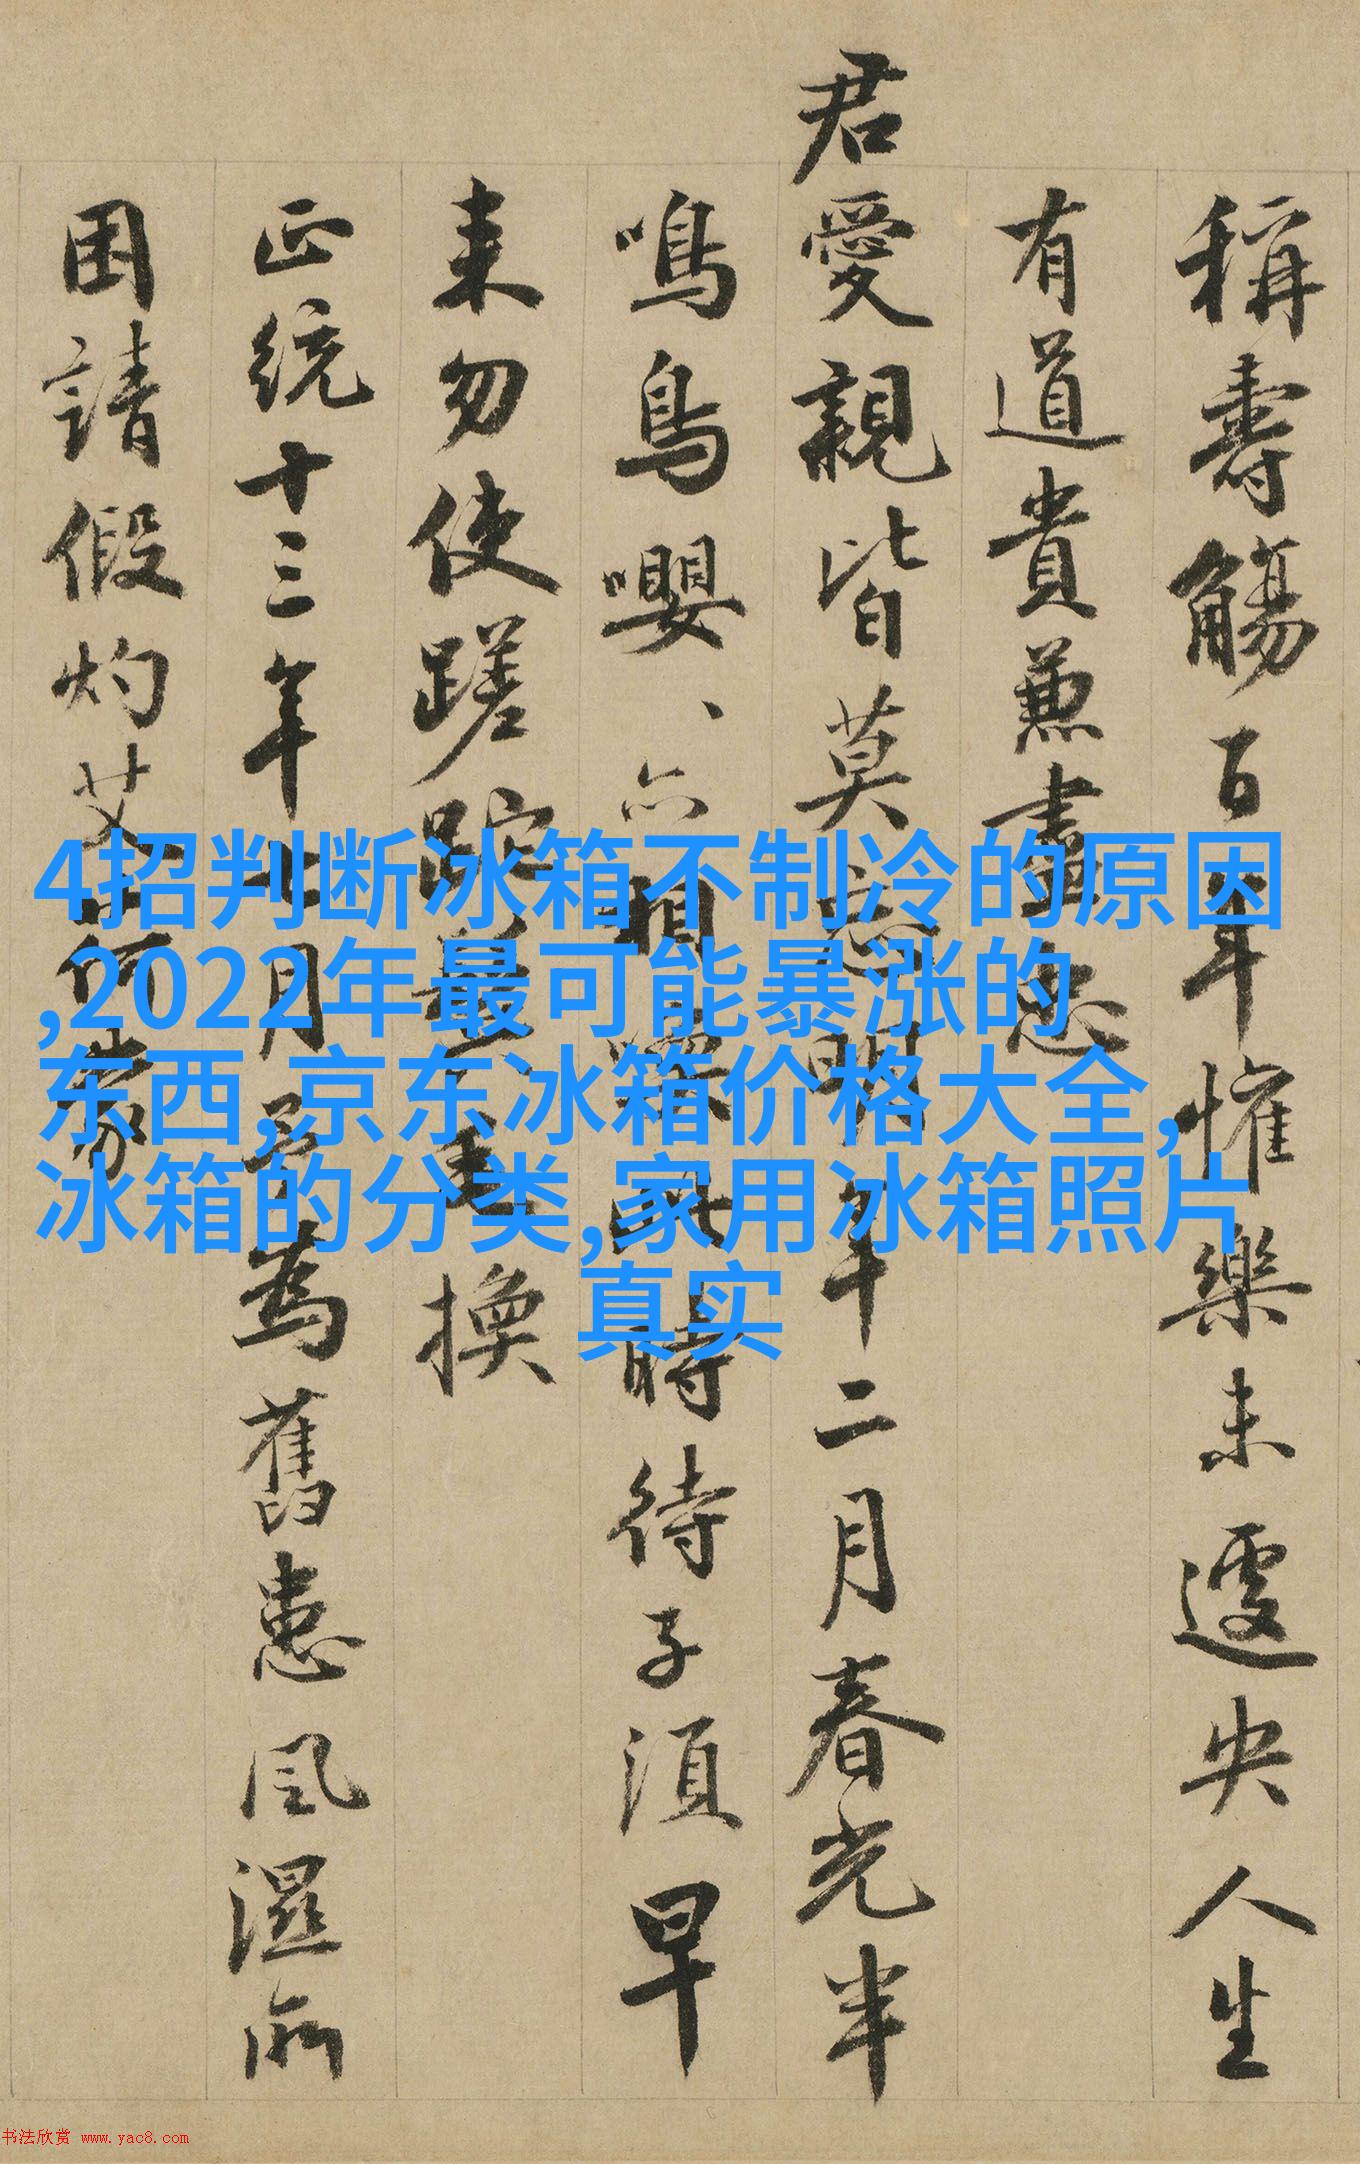 稱壽觴百年懽樂未遽央人生
有道貴兼盡忠
君愛親皆莫忘明年二月春光半
鳴鳥嚶、亦相樂此時待子須早
来勿使蹉跎叢重換
正統十三年七月予為舊患風濕所
困請假灼艾荷蒙
4招判断冰箱不制冷的原因
,2022年最可能暴涨的
东西,京东冰箱价格大全,
冰箱的分类,家用冰箱照片
真实
书法欣赏 www.yac8.com